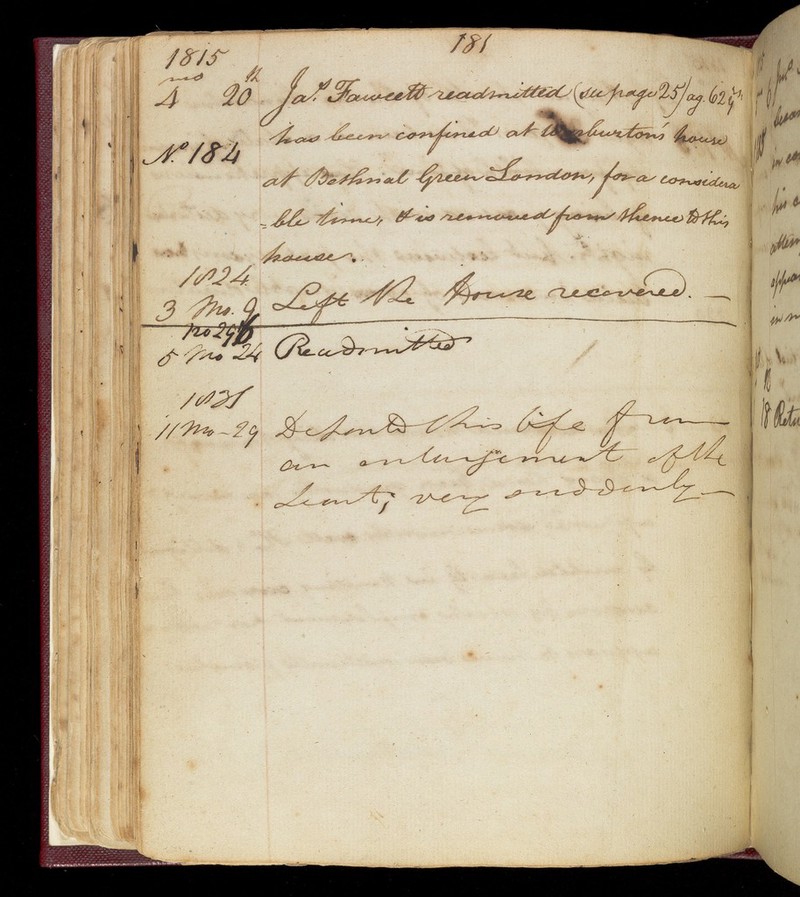 181
1815
mo
4 20th Jas. Fawcett readmitted (see page 25) ag. 62 ys
has been confined at Warburton's house
No. 184
at Bethnal Green London, for a considera
=ble time, & is removed from thence to this
house.
1824
3 Mo. 9 Left the House recovered. —
No 296
5 Mo 24 Readmitted
1831
11 Mo - 29 Departed this life from
an enlargement of the
heart; very suddenly —
6 Jno
in
his
in
18 Retu